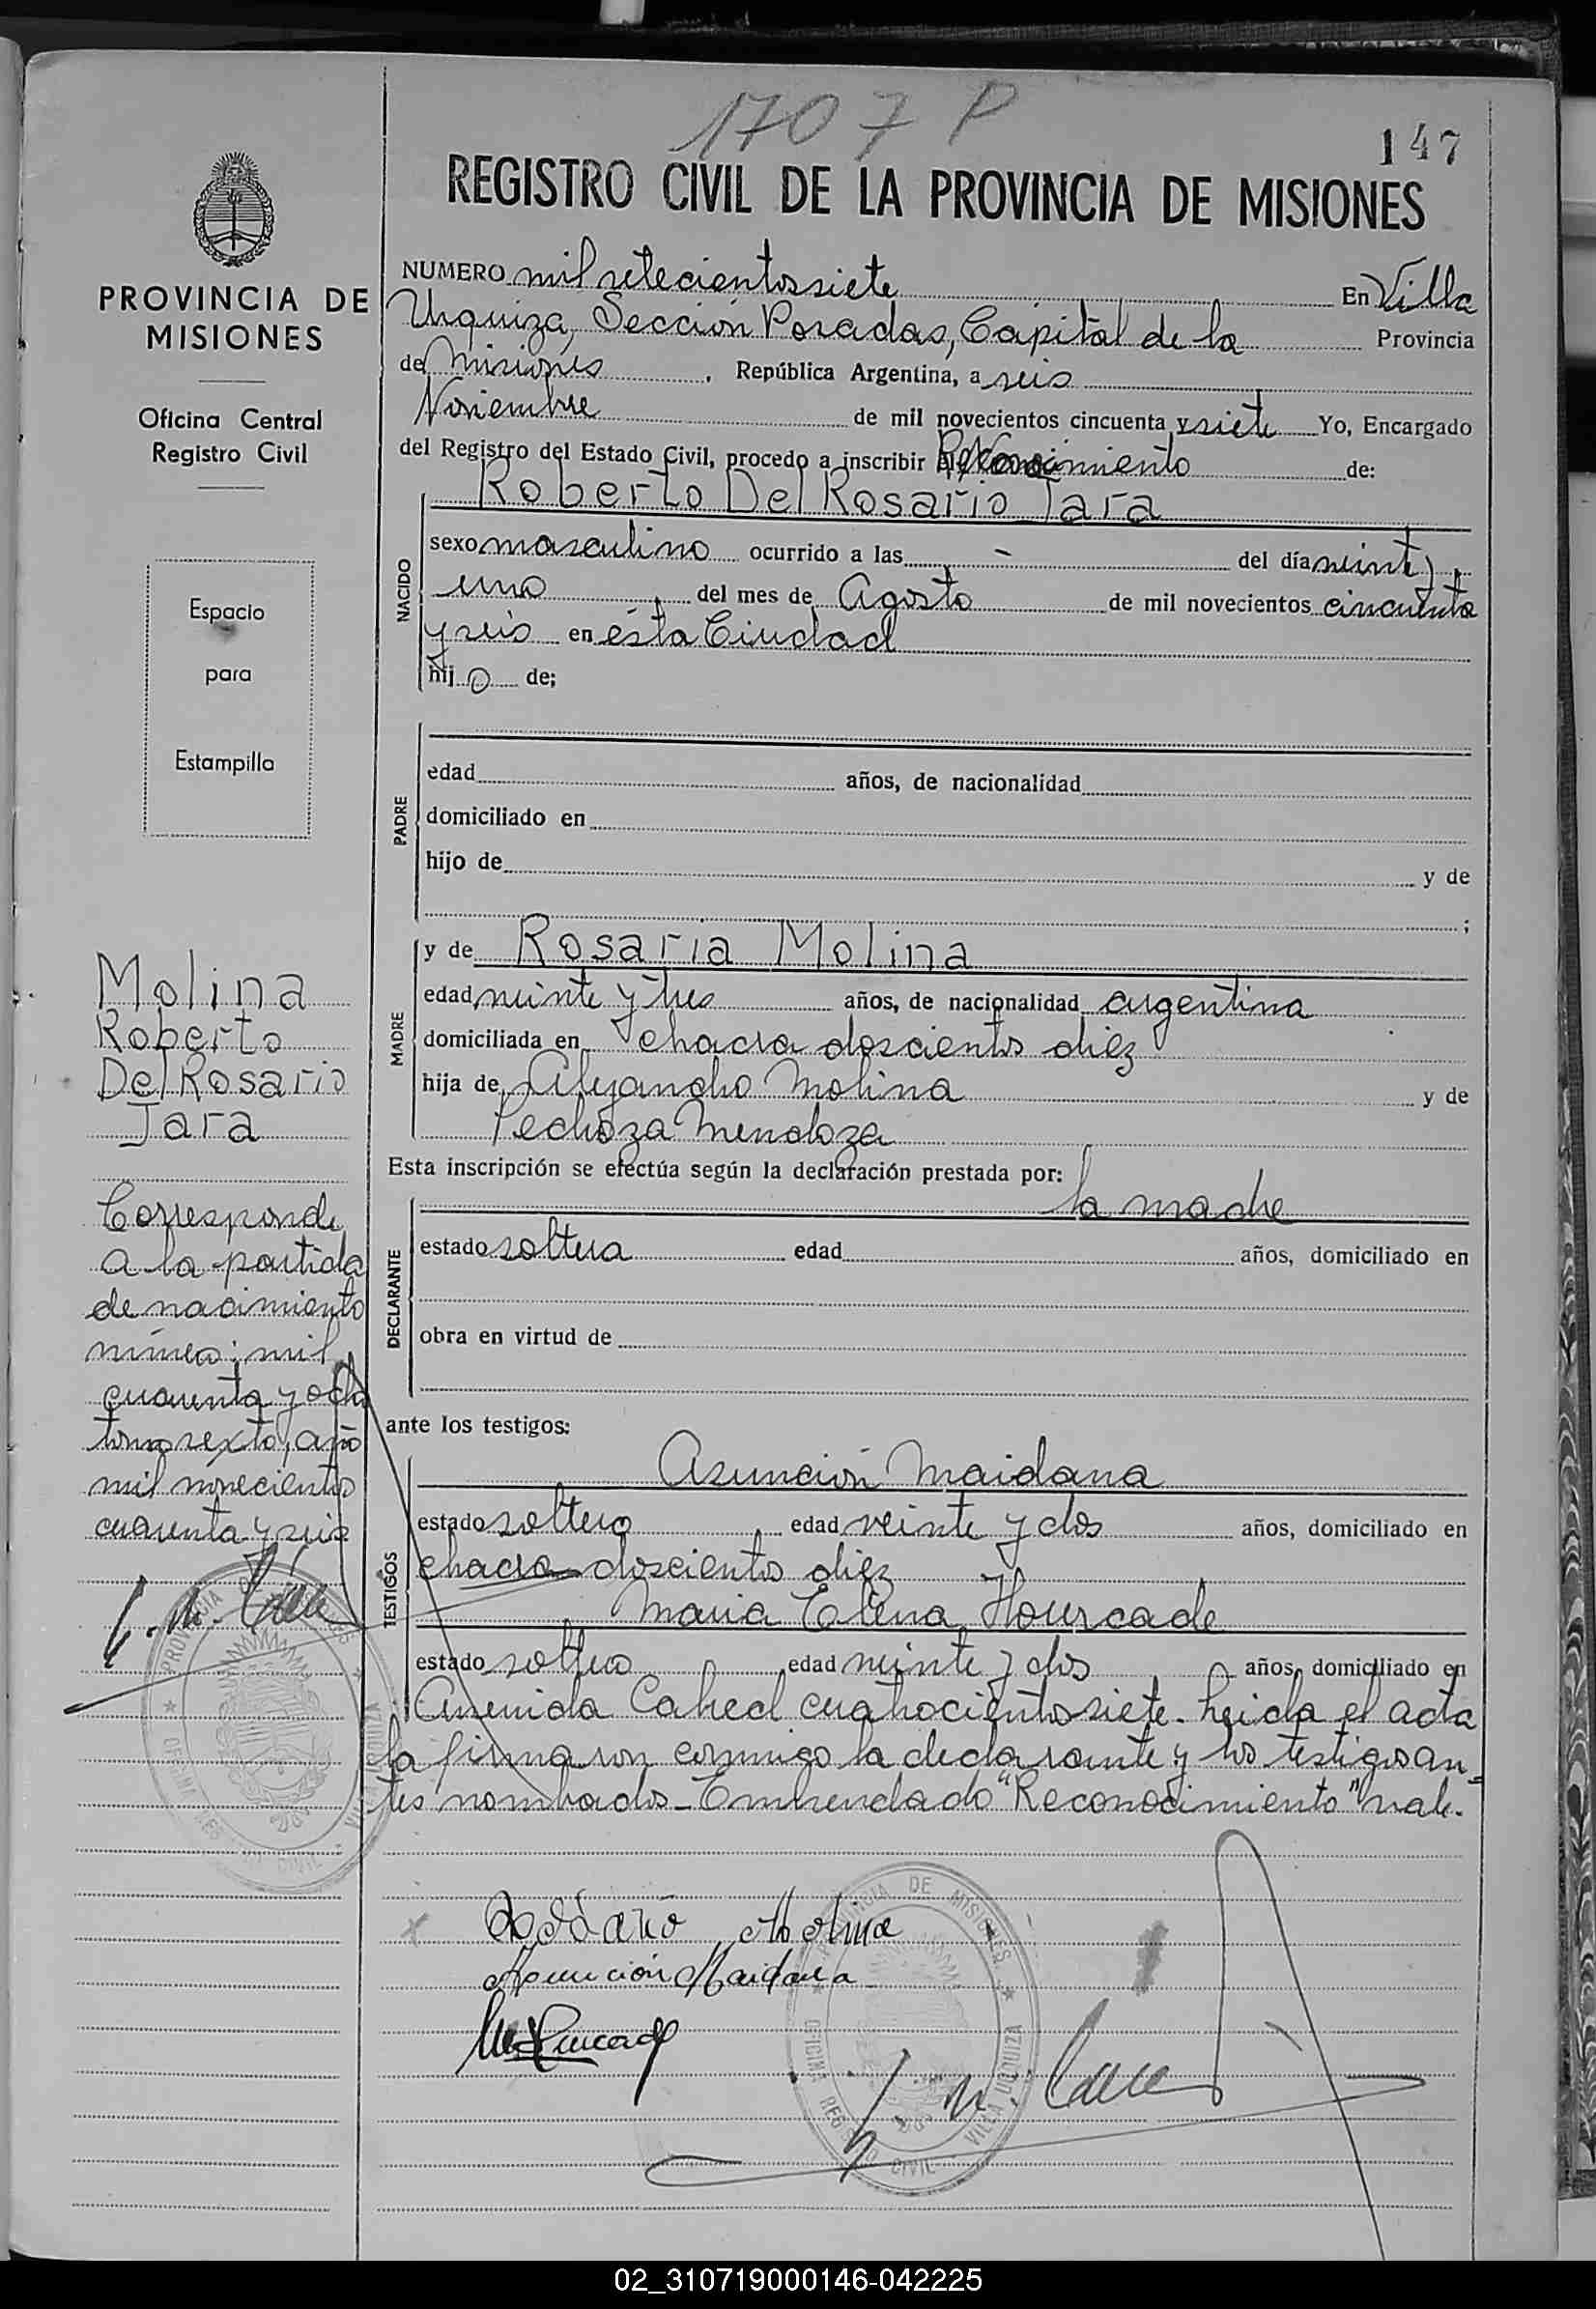 1707 P
147
REGISTRO CIVIL DE LA PROVINCIA DE MISIONES
NUMERO mil setecientos siete En Villa
Urquiza, Sección Posadas, Capital de la Provincia
de Misiones, República Argentina, a seis
Noviembre de mil novecientos cincuenta y siete Yo, Encargado
del Registro del Estado Civil, procedo a inscribir el Reconocimiento de:
Roberto Del Rosario Jara
NACIDO
sexo masculino ocurrido a las - del día veinte y
uno del mes de Agosto de mil novecientos cincuenta
y seis en ésta Ciudad
hijo de;
PADRE
edad años, de nacionalidad
domiciliado en
hijo de y de
;
MADRE
y de Rosaria Molina
edad veinte y tres años, de nacionalidad argentina
domiciliada en chacra doscientos diez
hija de Alejandro Molina y de
Mendoza
Esta inscripción se efectúa según la declaración prestada por:
la madre
DECLARANTE
estado soltera edad años, domiciliado en
obra en virtud de
ante los testigos:
TESTIGOS
Asunción Maidana
estado soltero edad veinte y dos años, domiciliado en
chacra doscientos diez
Maria Elena Hourcade
estado soltero edad veinte y dos años, domiciliado en
Avenida Cabred cuatrocientos siete. Leida el acta
la firmaron conmigo la declarante y los testigos an=
tes nombrados - Enmendado "Reconocimiento" vale.
Molina
Asunción Maidana
PROVINCIA DE MISIONES
OFICINA REGISTRO CIVIL VILLA URQUIZA
PROVINCIA DE
MISIONES
Oficina Central
Registro Civil
Espacio
para
Estampilla
Molina
Roberto
Del Rosario
Jara
Corresponde
a la partida
de nacimiento
número: mil
cuarenta y ocho
tomo sexto, año
mil novecientos
cuarenta y seis
PROVINCIA DE MISIONES
OFICINA REGISTRO CIVIL VILLA URQUIZA
02_310719000146-042225